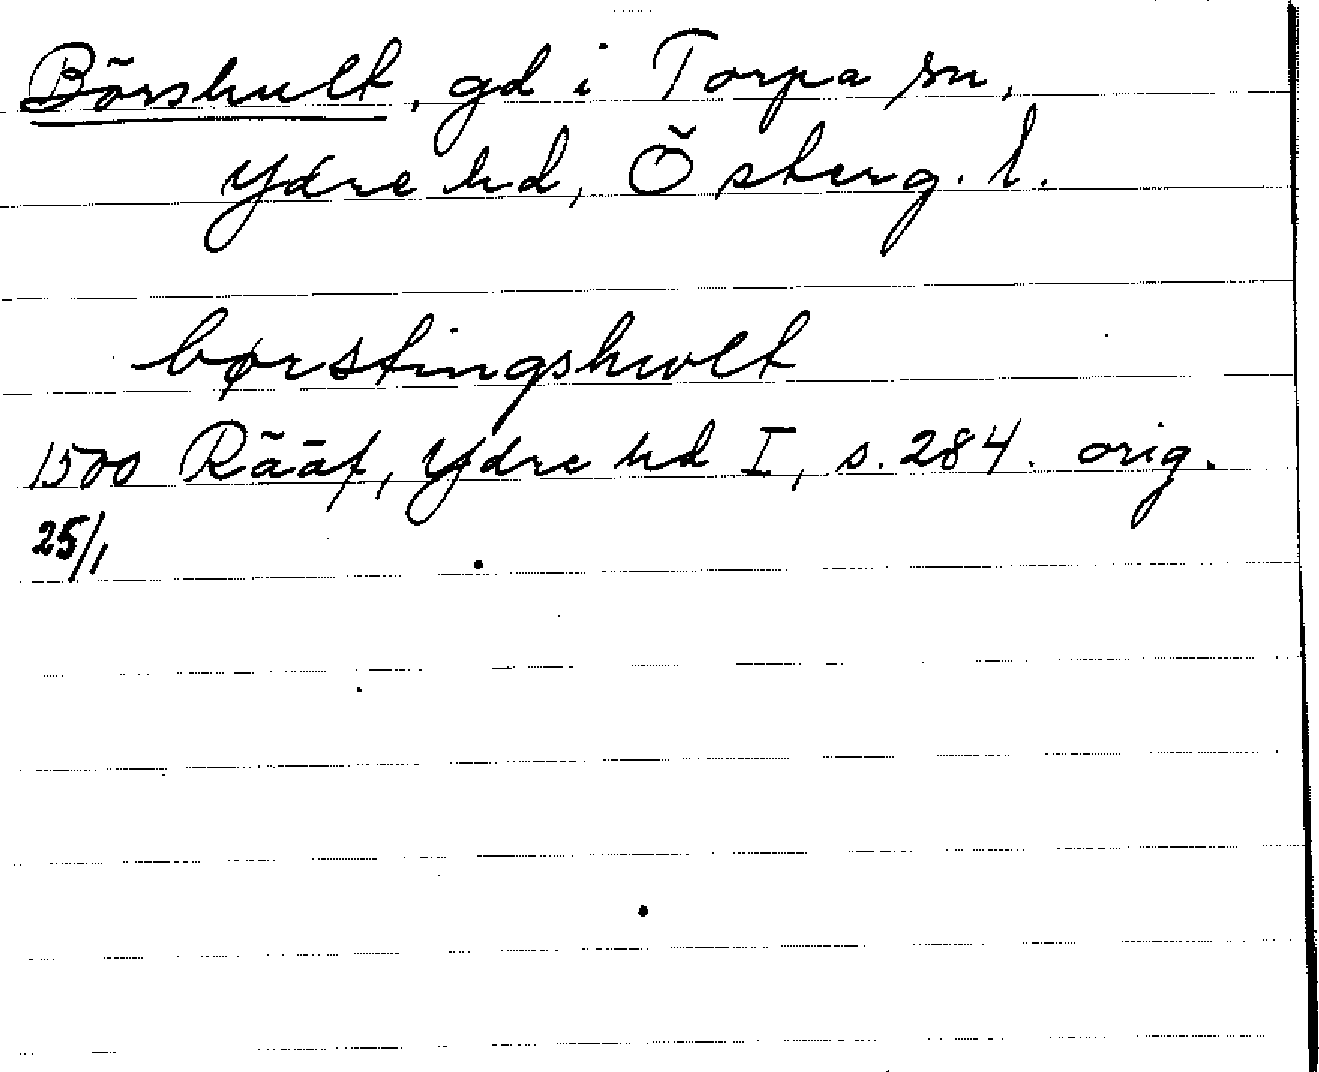 Börshult, gd i Torpa sn,
Ydre hd, Österg. l.
børstingshwlt
1500 Rääf, Ydre hd I, s. 284. orig.
25/1